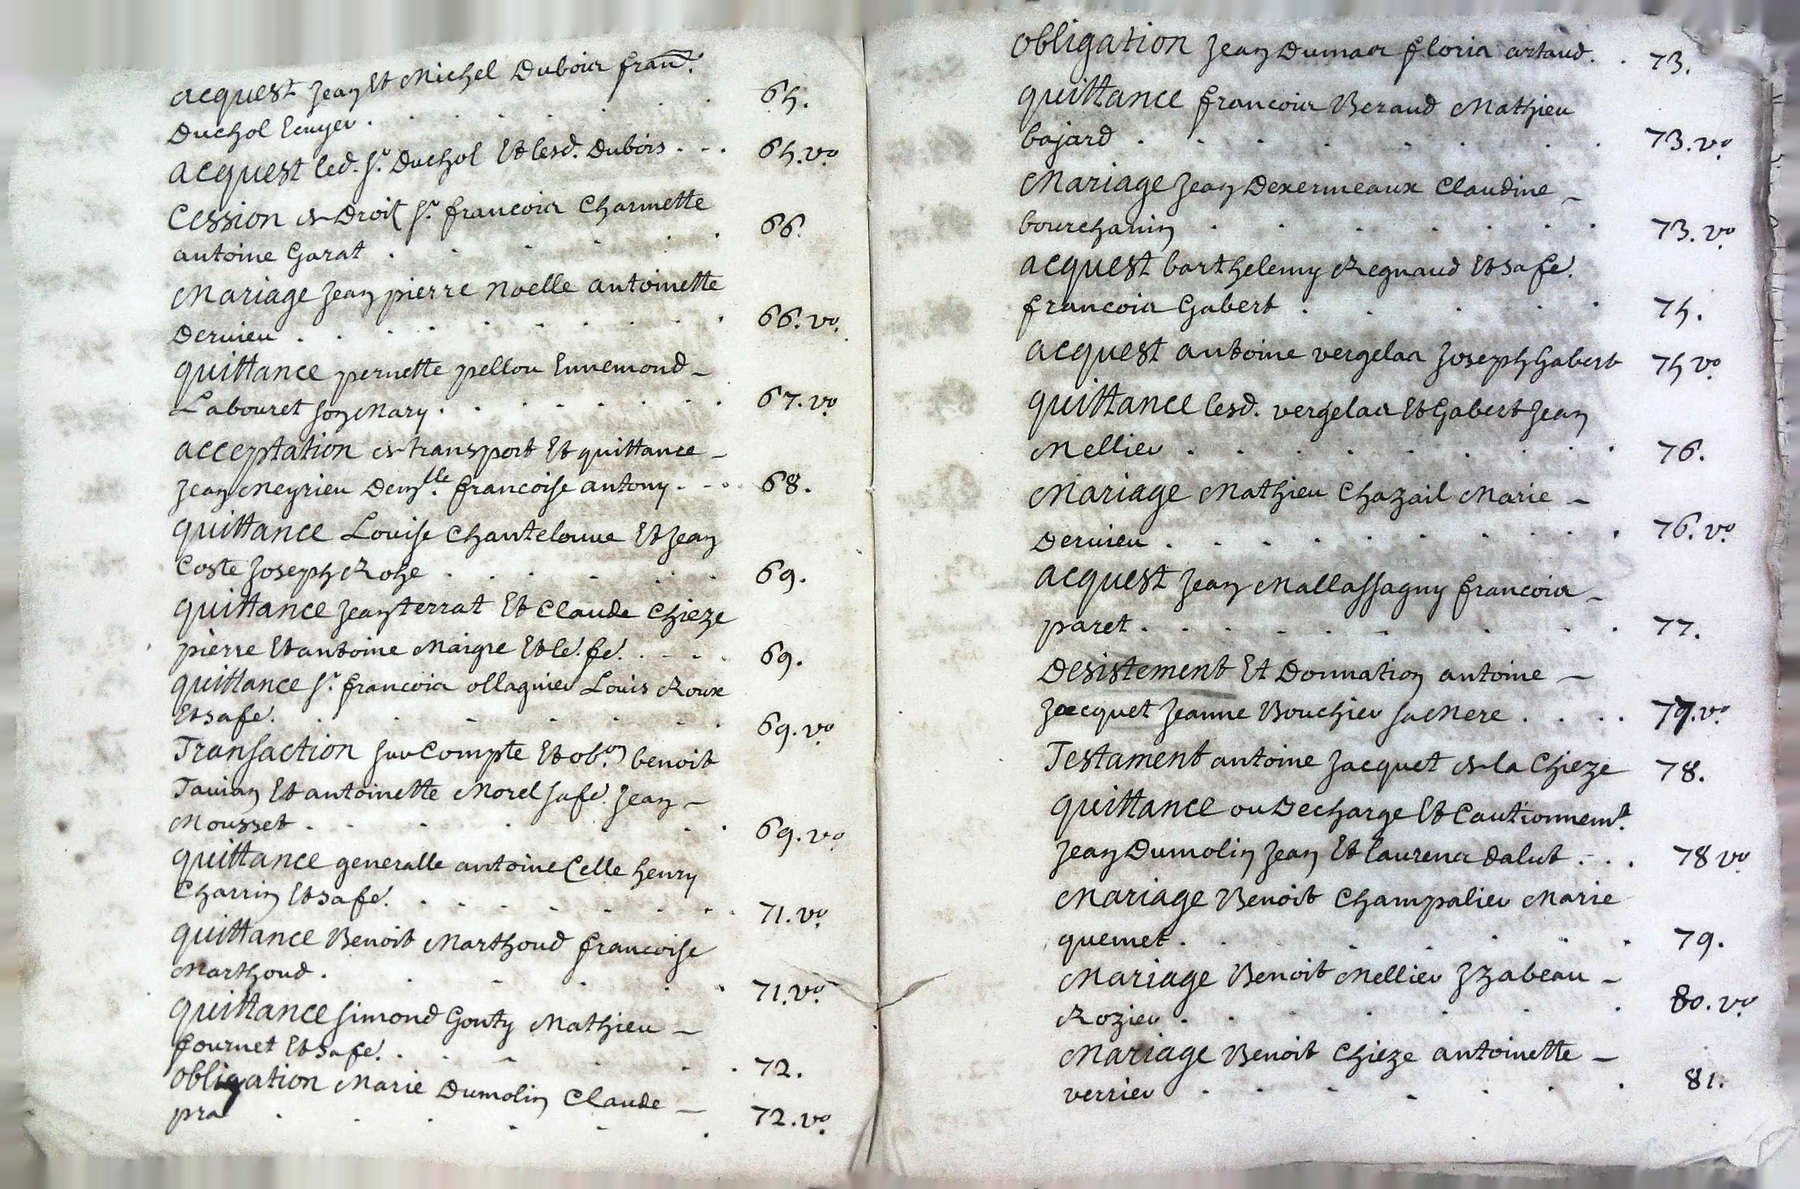 acquest Jean Et Michel Dubois fran.
Duchol Ecuyer . 65.
acquest led. Sr. Duchol Et lesd. Dubois . . . 65. vo
Cession de Droit Sr. francois Charmette
antoine Garat . 66.
Mariage Jean pierre Noelle antoinette
Dervieu . 66. vo.
quittance pernette pellou Ennemond
Labouret son Mary . 67. vo
acceptation de transport Et quittance
Jean Meyrieu Demlle. francoise antony . 68.
quittance Louise Chantelouue Et Jean
Coste Joseph Roze . 69.
quittance Jean terrat Et Claude Chieze
pierre Et antoine Maigre Et le. fe. 69.
quittance Sr. francois ollagnier Louis Roux
Et sa fe. 69. vo
Transaction sur Compte Et obon. benoit
Tauian Et antoinette Morel sa fe. Jean
Mousset . 69. vo.
quittance generalle antoine Celle henry
Charrin Et sa fe. 71. vo
quittance Benoit Marthoud francoise
Marthoud . 71. vo.
quittance Simond Gonty Mathieu
fournet Et sa fe. 72.
obligation Marie Dumolin Claude
pra 72. vo.
obligation Jean Dumas floris artaud . 73.
quittance francois Beraud Mathieu
bajard . 73. vo
Mariage Jean Dexermeaux Claudine
bourchanin . 73. vo
acquest barthelemy Regnaud Et sa fe.
francois Gabert . 75.
acquest antoine vergelas Joseph Gabert 75 vo
quittance lesd. vergelas Et Gabert Jean
Mellier . 76.
Mariage Mathieu Chazail Marie
Dervieu . 76. vo
acquest Jean Mallassagny francois
paret . 77.
Desistement Et Donnation antoine
Jacquet Jeanne Bouchier sa Mere . 77. vo
Testament antoine Jacquet de la Chieze 78.
quittance ou Decharge Et Cautionnemt.
Jean Dumolin Jean Et laurens dalut . 78 vo
Mariage Benoit Champalier Marie
quemet . 79.
Mariage Benoit Mellier Izabeau
Rozier . 80. vo
Mariage Benoit Chieze antoinette
verrier . 81.